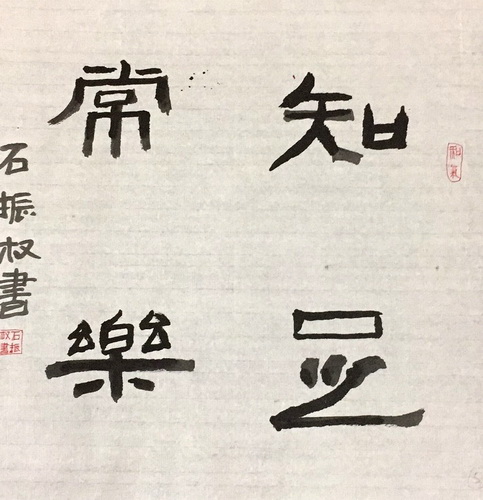 知足
常樂
石振叔書
石振
叔書